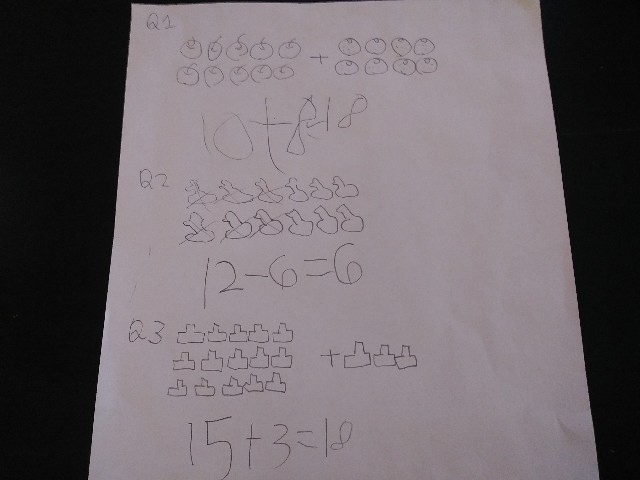 Q1
+
10+8=18
Q2
12-6=6
Q3
+
15+3=18